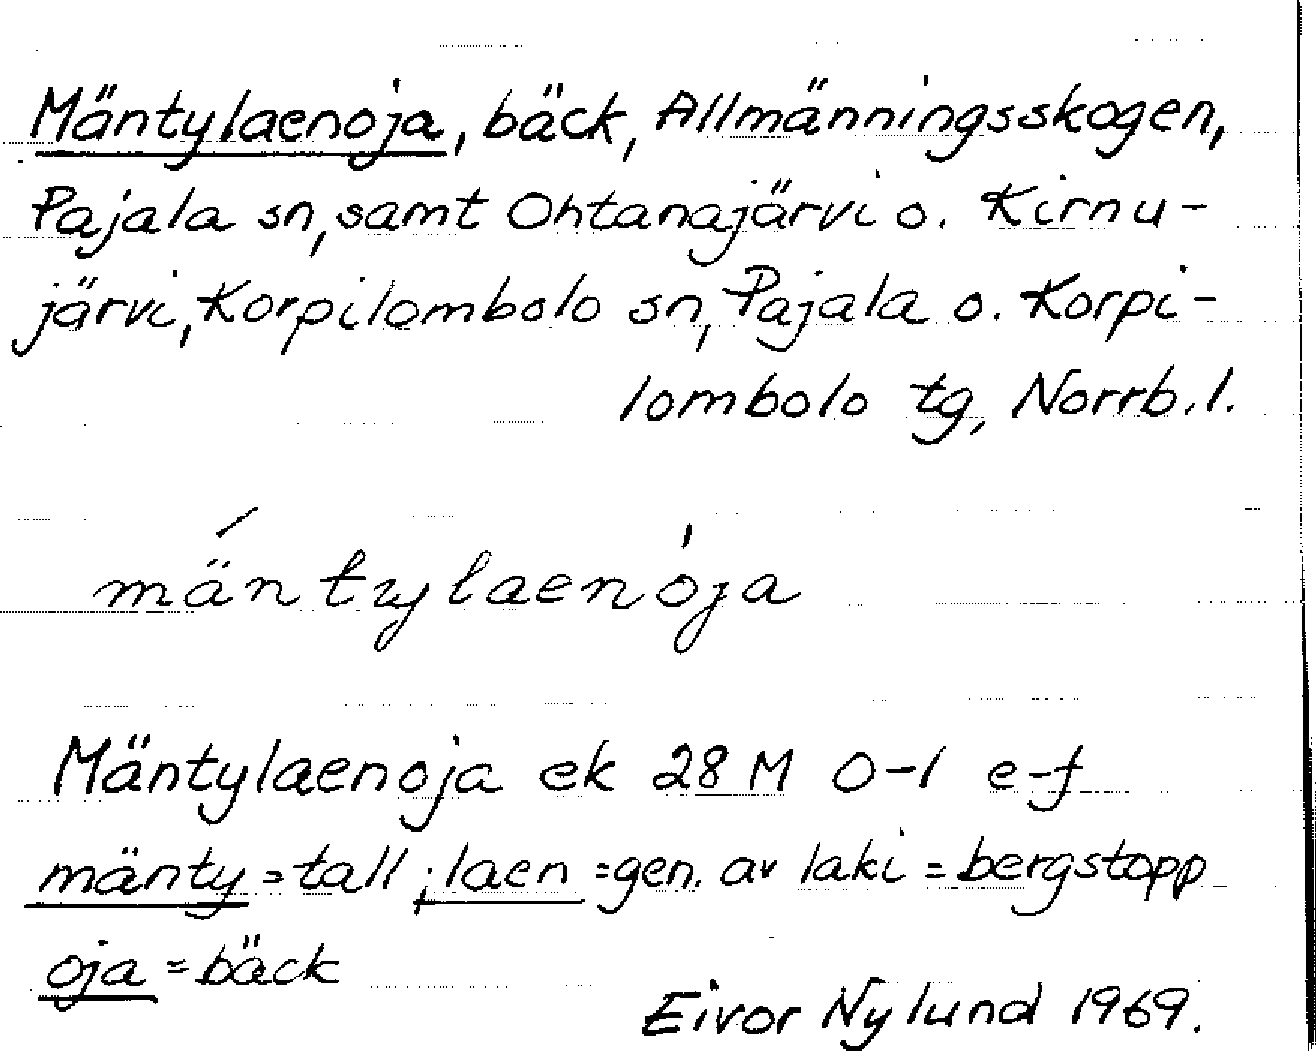 Mäntylaenoja, bäck, Allmänningsskogen,
Pajala sn, samt Ohtanajärvi o. Kirnu-
järvi, Korpilombolo sn, Pajala o. Korpi-
lombolo tg, Norrb. l.
mä́ntylaenòja
Mäntylaenoja ek 28 M 0-1 e-f
mänty = tall ; laen = gen. av laki = bergstopp
oja = bäck
Eivor Nylund 1969.